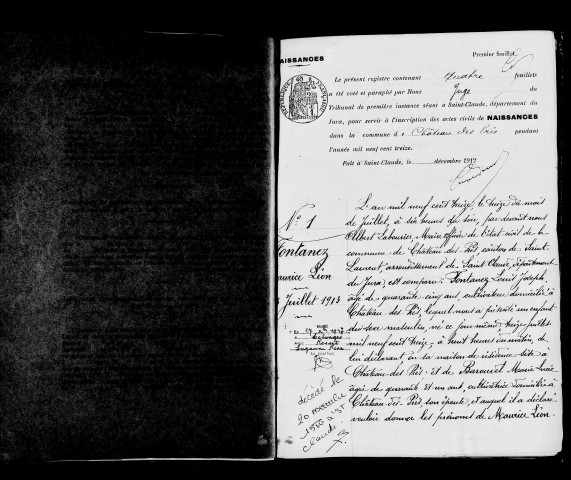 NAISSANCES
Premier feuillet.
Le présent registre contenant quatre feuillets
a été coté et paraphé par Nous Juge du
Tribunal de première instance séant à Saint-Claude, département du
Jura, pour servir à l'inscription des actes civils de NAISSANCES
dans la commune d e Château des Prés pendant
l'année mil neuf cent treize.
Fait à Saint-Claude, le décembre 1912
N° 1
Fontanez
Maurice Léon
Juillet 1913
décédé le
20
St
Claude
L'an mil neuf cent treize, le treize du mois
de juillet, à six heures du soir, par devant nous
Albert Labourier, Maire officier de l'état civil de la
commune de Château des Prés, canton de Saint-
Laurent, arrondissement de Saint Claude, département
du Jura, est comparu: Fontanez Louis Joseph
âgé de quarante cinq ans, cultivateur domicilié à
Château-des-Prés, lequel nous a présenté un enfant
du sexe masculin, né ce jourd'hui treize juillet
mil neuf cent treize, à huit heures du matin, de
lui déclarant en sa maison de résidence sise à
Château-des-Prés et de Marie Lucie
âgée de quarante et un ans, cultivatrice domiciliée à
Château-des-Prés, son épouse, et auquel il a déclaré
vouloir donner les prénoms de Maurice Léon.